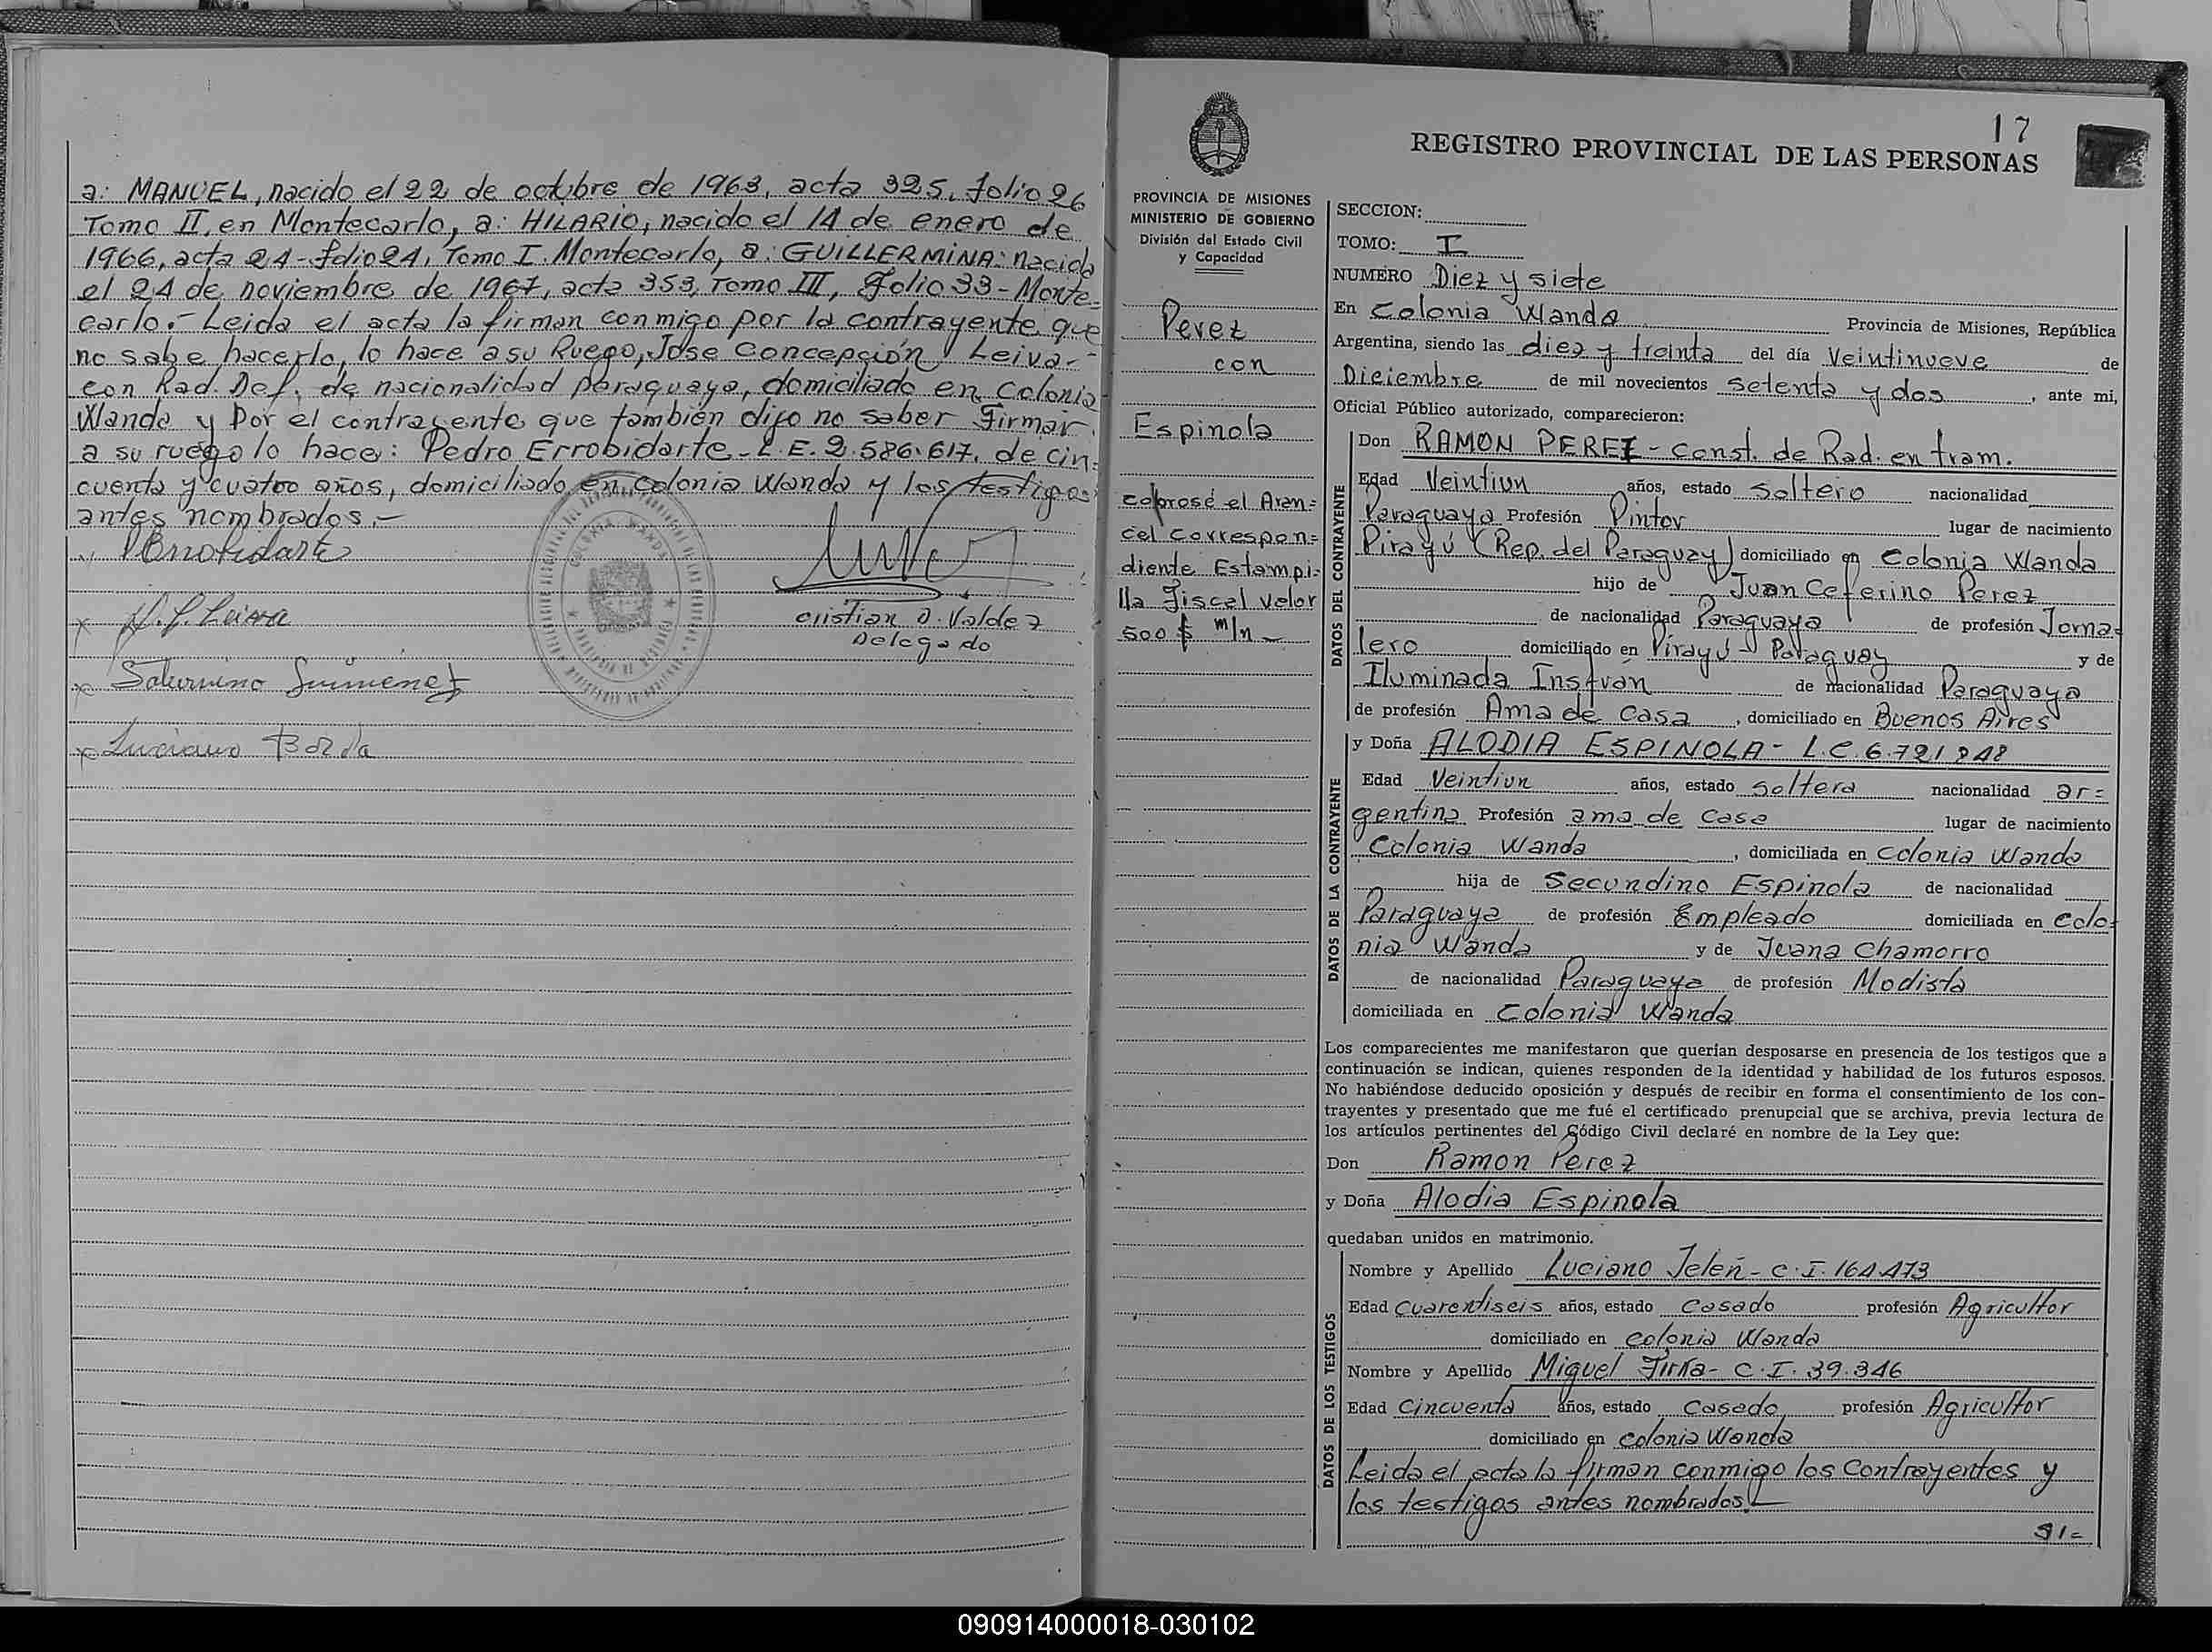 a: MANUEL, nacido el 22 de octubre de 1963, acta 325, folio 26
Tomo II, en Montecarlo, a: HILARIO, nacido el 14 de enero de
1966, acta 24 - folio 24, Tomo I. Montecarlo, a: GUILLERMINA: nacida
el 24 de noviembre de 1967, acta 353, Tomo III, Folio 33 - Monte=
carlo.- Leida el acta la firman conmigo por la contrayente que
no sabe hacerlo, lo hace a su Ruego, Jose Concepción Leiva.-
con Rad. Def. de nacionalidad paraguaya, domiciliado en Colonia
Wanda y Por el contrayente que también dijo no saber Firmar.
a su ruego lo hace: Pedro Errobidarte - L.E. 2.586.617, de cin=
cuenta y cuatro años, domiciliado en Colonia Wanda y los testigos
antes nombrados.-
PErrobidarte
Leiva
cristian D. Valdez
Delegado
Saturnino Guimenez
Luciano Borda
COLONIA WANDA
17
REGISTRO PROVINCIAL DE LAS PERSONAS
PROVINCIA DE MISIONES
MINISTERIO DE GOBIERNO
División del Estado Civil
y Capacidad
Perez
con
Espinola
cobrose el Aran=
cel Correspon=
diente Estampi=
lla Fiscal Valor
500 $ m/n -
SECCION:
TOMO: I
NUMERO Diez y siete
En Colonia Wanda Provincia de Misiones, República
Argentina, siendo las diez y treinta del día Veintinueve de
Diciembre de mil novecientos setenta y dos, ante mi,
Oficial Público autorizado, comparecieron:
DATOS DEL CONTRAYENTE
Don RAMON PEREZ - Const. de Rad. en tram.
Edad Veintiun años, estado soltero nacionalidad
Paraguaya Profesión Pintor lugar de nacimiento
Pirayú (Rep. del Paraguay) domiciliado en Colonia Wanda
hijo de Juan Ceferino Perez
de nacionalidad Paraguaya de profesión Jorna=
lero domiciliado en Pirayú - Paraguay y de
Iluminada Insfrán de nacionalidad Paraguaya
de profesión Ama de Casa, domiciliado en Buenos Aires
DATOS DE LA CONTRAYENTE
y Doña ALODIA ESPINOLA - L.C. 6.721.848
Edad Veintiun años, estado soltera nacionalidad ar=
gentina Profesión ama de Casa lugar de nacimiento
Colonia Wanda, domiciliada en Colonia Wanda
hija de Secundino Espinola de nacionalidad
Paraguaya de profesión Empleado domiciliada en Colo=
nia Wanda y de Juana Chamorro
de nacionalidad Paraguaya de profesión Modista
domiciliada en Colonia Wanda
Los comparecientes me manifestaron que querían desposarse en presencia de los testigos que a
continuación se indican, quienes responden de la identidad y habilidad de los futuros esposos.
No habiéndose deducido oposición y después de recibir en forma el consentimiento de los con-
trayentes y presentado que me fué el certificado prenupcial que se archiva, previa lectura de
los artículos pertinentes del Código Civil declaré en nombre de la Ley que:
Don Ramon Perez
y Doña Alodia Espinola
quedaban unidos en matrimonio.
DATOS DE LOS TESTIGOS
Nombre y Apellido Luciano Jeleñ - C.I. 164.473
Edad Cuarentiseis años, estado Casado profesión Agricultor
domiciliado en Colonia Wanda
Nombre y Apellido Miguel Jirka - C.I. 39.346
Edad Cincuenta años, estado Casado profesión Agricultor
domiciliado en Colonia Wanda
Leida el acta la firman conmigo los Contrayentes y
los testigos antes nombrados.-
090914000018-030102